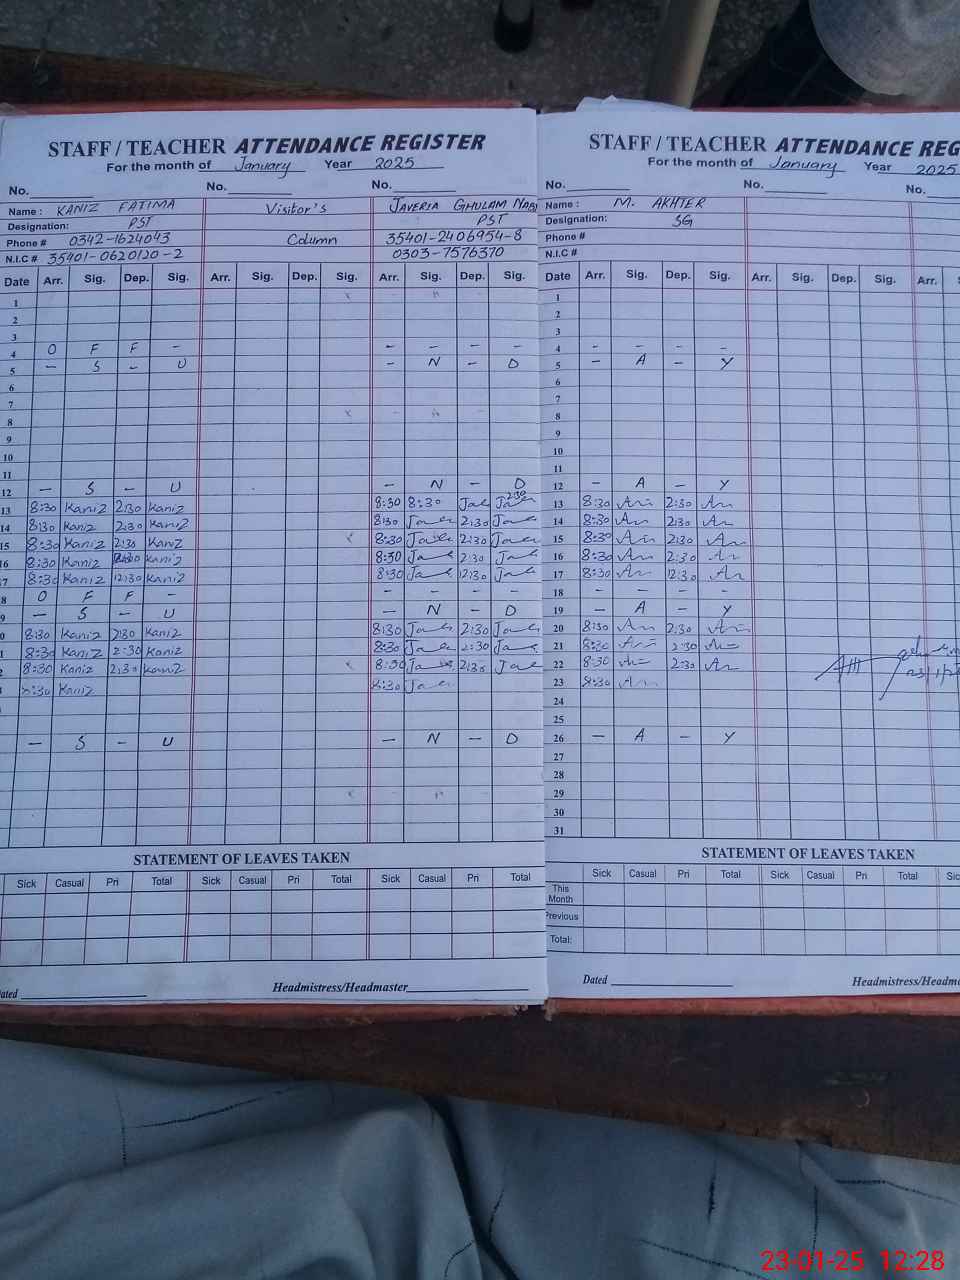 STAFF / TEACHER ATTENDANCE REGISTER
For the month of January Year 2025
No. No. No.
Name : KANIZ FATIMA Visitor's JAVERIA GHULAM NABI
Designation: PST PST
Phone # 0342-1624043 Column 35401-2406954-8
N.I.C # 35401-0620120-2 0303-7576370
Date Arr. Sig. Dep. Sig. Arr. Sig. Dep. Sig. Arr. Sig. Dep. Sig.
1
2
3
4 O F F - - - - -
5 - S - U - N - D
6
7
8
9
10
11
12 - S - U - N - D
13 8:30 Kaniz 2:30 Kaniz 8:30 8:30 2:30
14 8:30 Kaniz 2:30 Kaniz 8:30 2:30
15 8:30 Kaniz 2:30 Kaniz 8:30 2:30
16 8:30 Kaniz Kaniz 8:30 2:30
17 8:30 Kaniz 12:30 Kaniz 8:30 12:30
8 O F F - - - - -
9 - S - U - N - D
0 8:30 Kaniz 2:30 Kaniz 8:30 2:30
1 8:30 Kaniz 2:30 Kaniz 8:30 2:30
2 8:30 Kaniz 2:30 Kaniz 8:30 2:30
8:30 Kaniz 8:30
- S - U - N - D
STATEMENT OF LEAVES TAKEN
Sick Casual Pri Total Sick Casual Pri Total Sick Casual Pri Total
Dated Headmistress/Headmaster
STAFF / TEACHER ATTENDANCE REG
For the month of January Year 2025
No. No. No.
Name : M. AKHTER
Designation: SG
Phone #
N.I.C #
Date Arr. Sig. Dep. Sig. Arr. Sig. Dep. Sig. Arr. S
1
2
3
4 - - - -
5 - A - Y
6
7
8
9
10
11
12 - A - Y
13 8:30 2:30
14 8:30 2:30
15 8:30 2:30
16 8:30 2:30
17 8:30 12:30
18 - - - -
19 - A - Y
20 8:30 2:30
21 8:30 2:30
22 8:30 2:30
23 8:30 23/1/25
24
25
26 - A - Y
27
28
29
30
31
STATEMENT OF LEAVES TAKEN
Sick Casual Pri Total Sick Casual Pri Total Sic
This Month
Previous
Total:
Dated Headmistress/Headma
23-01-25 12:28